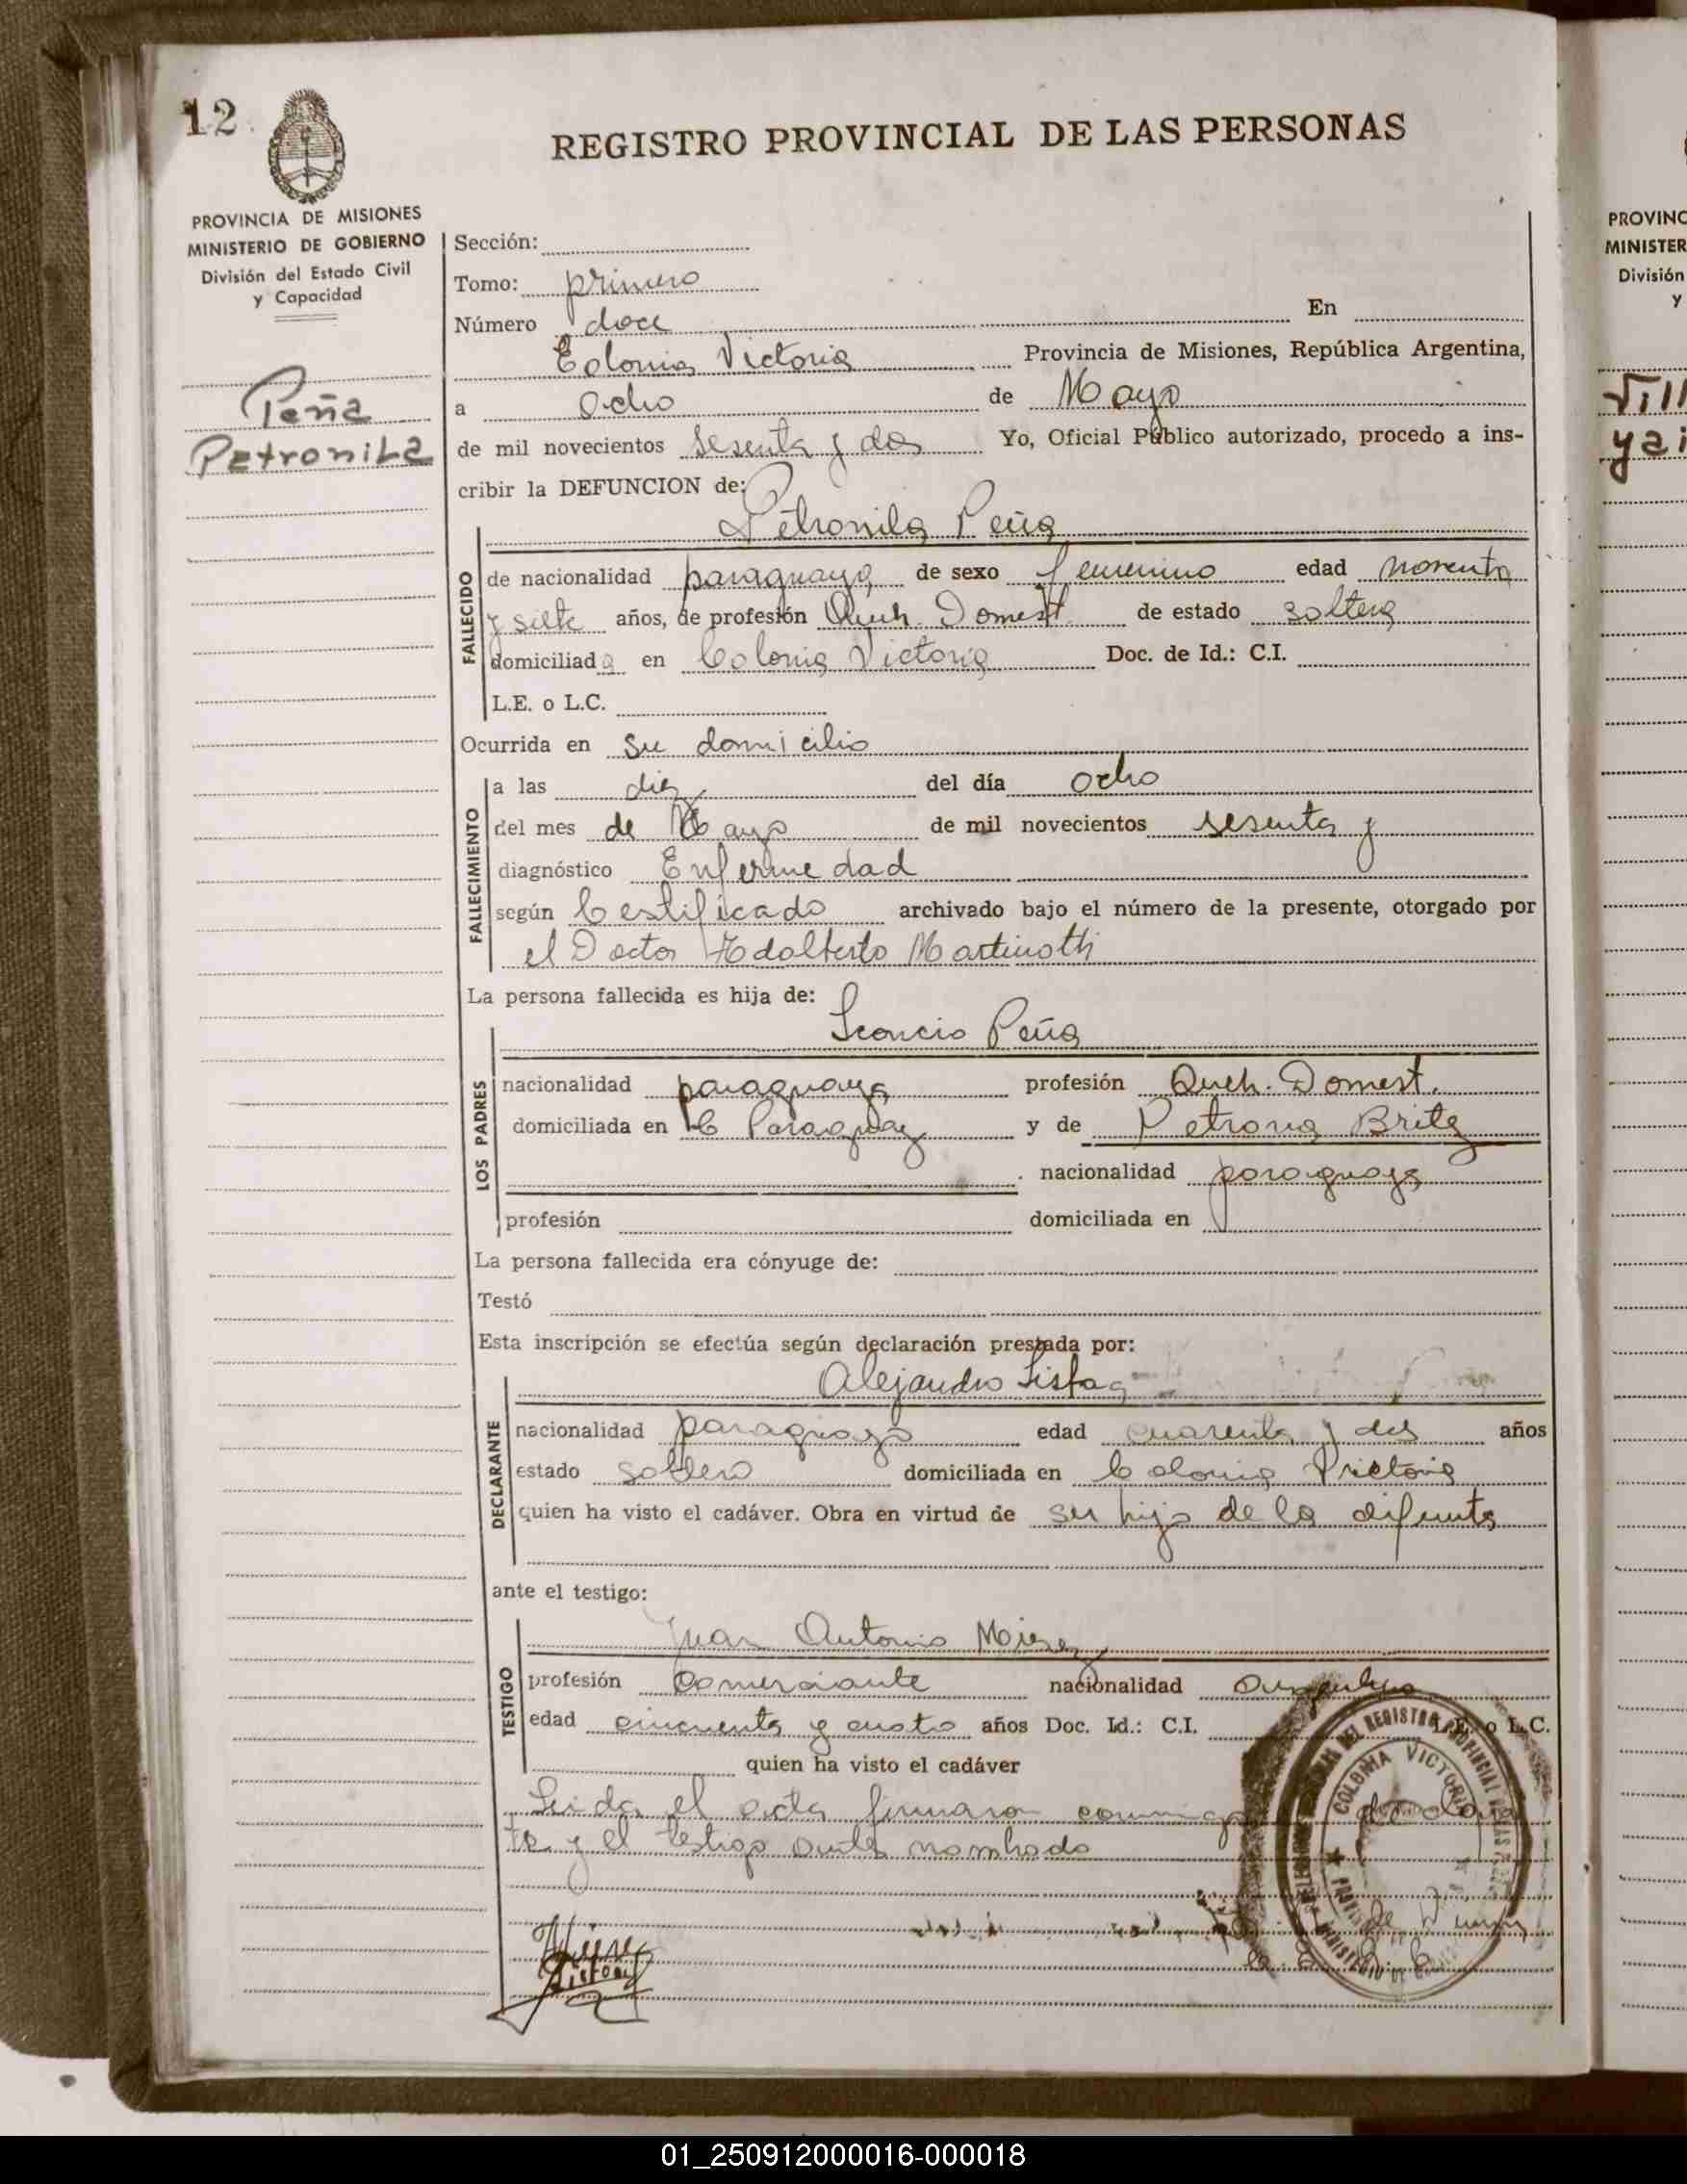 12
REGISTRO PROVINCIAL DE LAS PERSONAS
PROVINCIA DE MISIONES
MINISTERIO DE GOBIERNO
División del Estado Civil
y Capacidad
Peña
Petronila
Sección:
Tomo: primero
Número doce En
Colonia Victoria Provincia de Misiones, República Argentina,
a ocho de Mayo
de mil novecientos sesenta y dos Yo, Oficial Público autorizado, procedo a ins-
cribir la DEFUNCION de:
Petronila Peña
FALLECIDO
de nacionalidad paraguaya de sexo femenino edad noventa
y siete años, de profesión Queh. Domest. de estado soltera
domiciliada en Colonia Victoria Doc. de Id.: C.I.
L.E. o L.C.
Ocurrida en su domicilio
FALLECIMIENTO
a las diez del día ocho
del mes de Mayo de mil novecientos sesenta y
diagnóstico Enfermedad
según Certificado archivado bajo el número de la presente, otorgado por
el Doctor Adalberto Martinotti
La persona fallecida es hija de:
Leoncio Peña
LOS PADRES
nacionalidad paraguaya profesión Queh. Domest.
domiciliada en Paraguay y de Petrona Britez
nacionalidad paraguaya
profesión domiciliada en
La persona fallecida era cónyuge de:
Testó
Esta inscripción se efectúa según declaración prestada por:
Alejandro
DECLARANTE
nacionalidad paraguayo edad cuarenta y dos años
estado soltero domiciliada en Colonia Victoria
quien ha visto el cadáver. Obra en virtud de ser hijo de la difunta
ante el testigo:
Juan Antonio
TESTIGO
profesión Comerciante nacionalidad
edad cincuenta y cuatro años Doc. Id.: C.I. L.E. o L.C.
quien ha visto el cadáver
Leida el acta firmaron conmigo
te y el testigo antes nombrado
COLONIA VICTORIA
PROVINC
MINISTER
División
y
Vill
yai
01_250912000016-000018